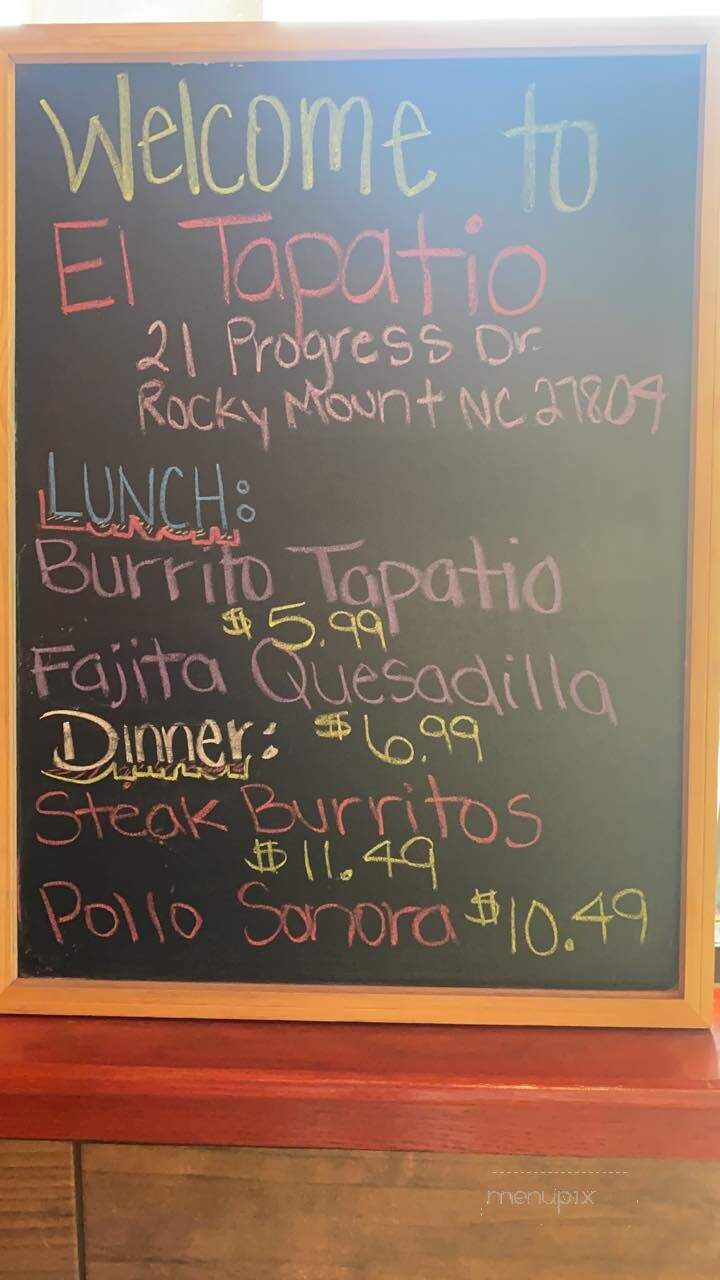 Welcome to
El Tapatio
21 Progress Dr.
Rocky Mount NC 27804
LUNCH:
Burrito Tapatio
$5.99
Fajita Quesadilla
Dinner: $6.99
Steak Burritos
$11.49
Pollo Sonora $10.49
menupix